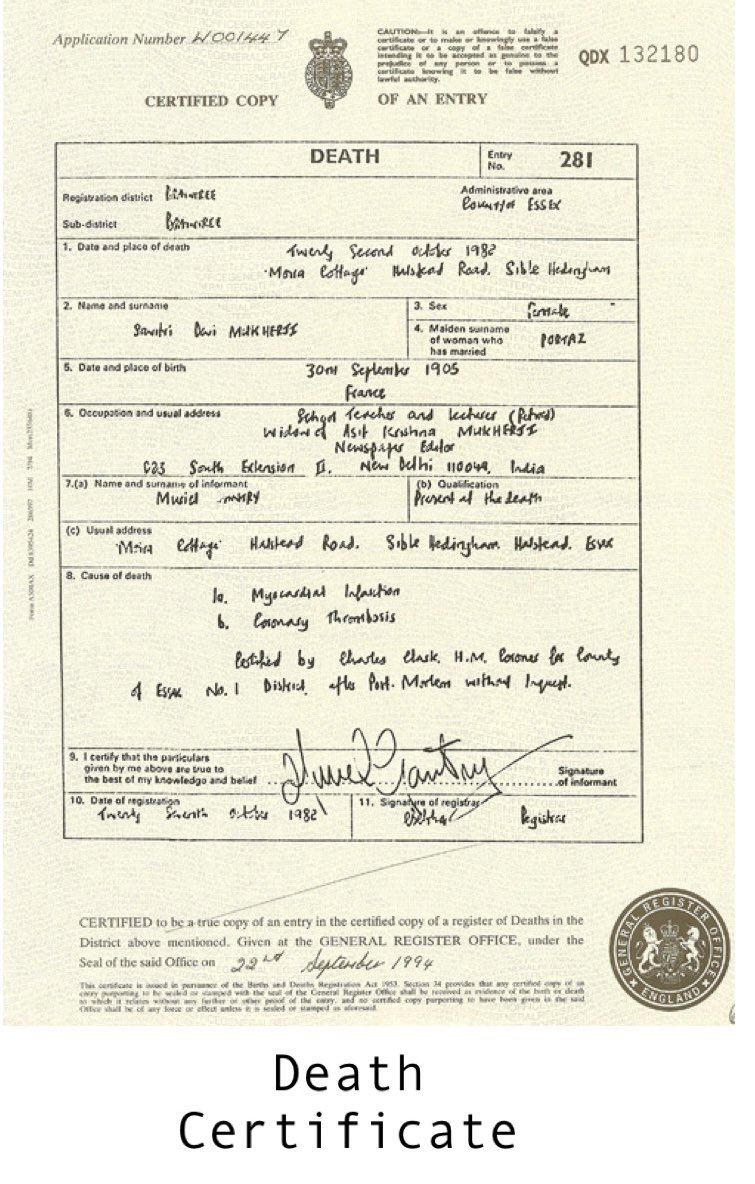 Application Number W001447
CAUTION:—It is an offence to falsify a
certificate or to make or knowingly use a false
certificate or a copy of a false certificate
intending it to be accepted as genuine to the
prejudice of any person or to possess a
certificate knowing it to be false without
lawful authority.
QDX 132180
CERTIFIED COPY OF AN ENTRY
DEATH
Entry No. 281
Registration district
Administrative area
County of ESSEX
Sub-district
1. Date and place of death
Twenty Second October 1982
'Moira Cottage' Halstead Road. Sible Hedingham
2. Name and surname
Savitri Devi MUKHERJI
3. Sex
Female
4. Maiden surname
of woman who
has married
PORTAZ
5. Date and place of birth
30th September 1905
France
6. Occupation and usual address
School Teacher and Lecturer (Retired)
Widow of Asit Krishna MUKHERJI
Newspaper Editor
South Extension II. New Delhi 110049, India
7.(a) Name and surname of informant
Muriel
(b) Qualification
Present at the death
(c) Usual address
'Moira Cottage' Halstead Road. Sible Hedingham. Halstead. Essex
8. Cause of death
1a. Myocardial Infarction
b. Coronary Thrombosis
Certified by Charles Clark, H.M. Coroner for County
of Essex No. 1 District, after Post. Mortem without Inquest.
9. I certify that the particulars
given by me above are true to
the best of my knowledge and belief
Signature
of informant
10. Date of registration
Twenty Seventh October 1982
11. Signature of registrar
Registrar
CERTIFIED to be a true copy of an entry in the certified copy of a register of Deaths in the
District above mentioned. Given at the GENERAL REGISTER OFFICE, under the
Seal of the said Office on 22nd September 1994
This certificate is issued in pursuance of the Births and Deaths Registration Act 1953. Section 34 provides that any certified copy of an
entry purporting to be sealed or stamped with the seal of the General Register Office shall be received as evidence of the birth or death
to which it relates without any further or other proof of the entry, and no certified copy purporting to have been given in the said
Office shall be of any force or effect unless it is sealed or stamped as aforesaid.
GENERAL REGISTER OFFICE
ENGLAND
Death
Certificate